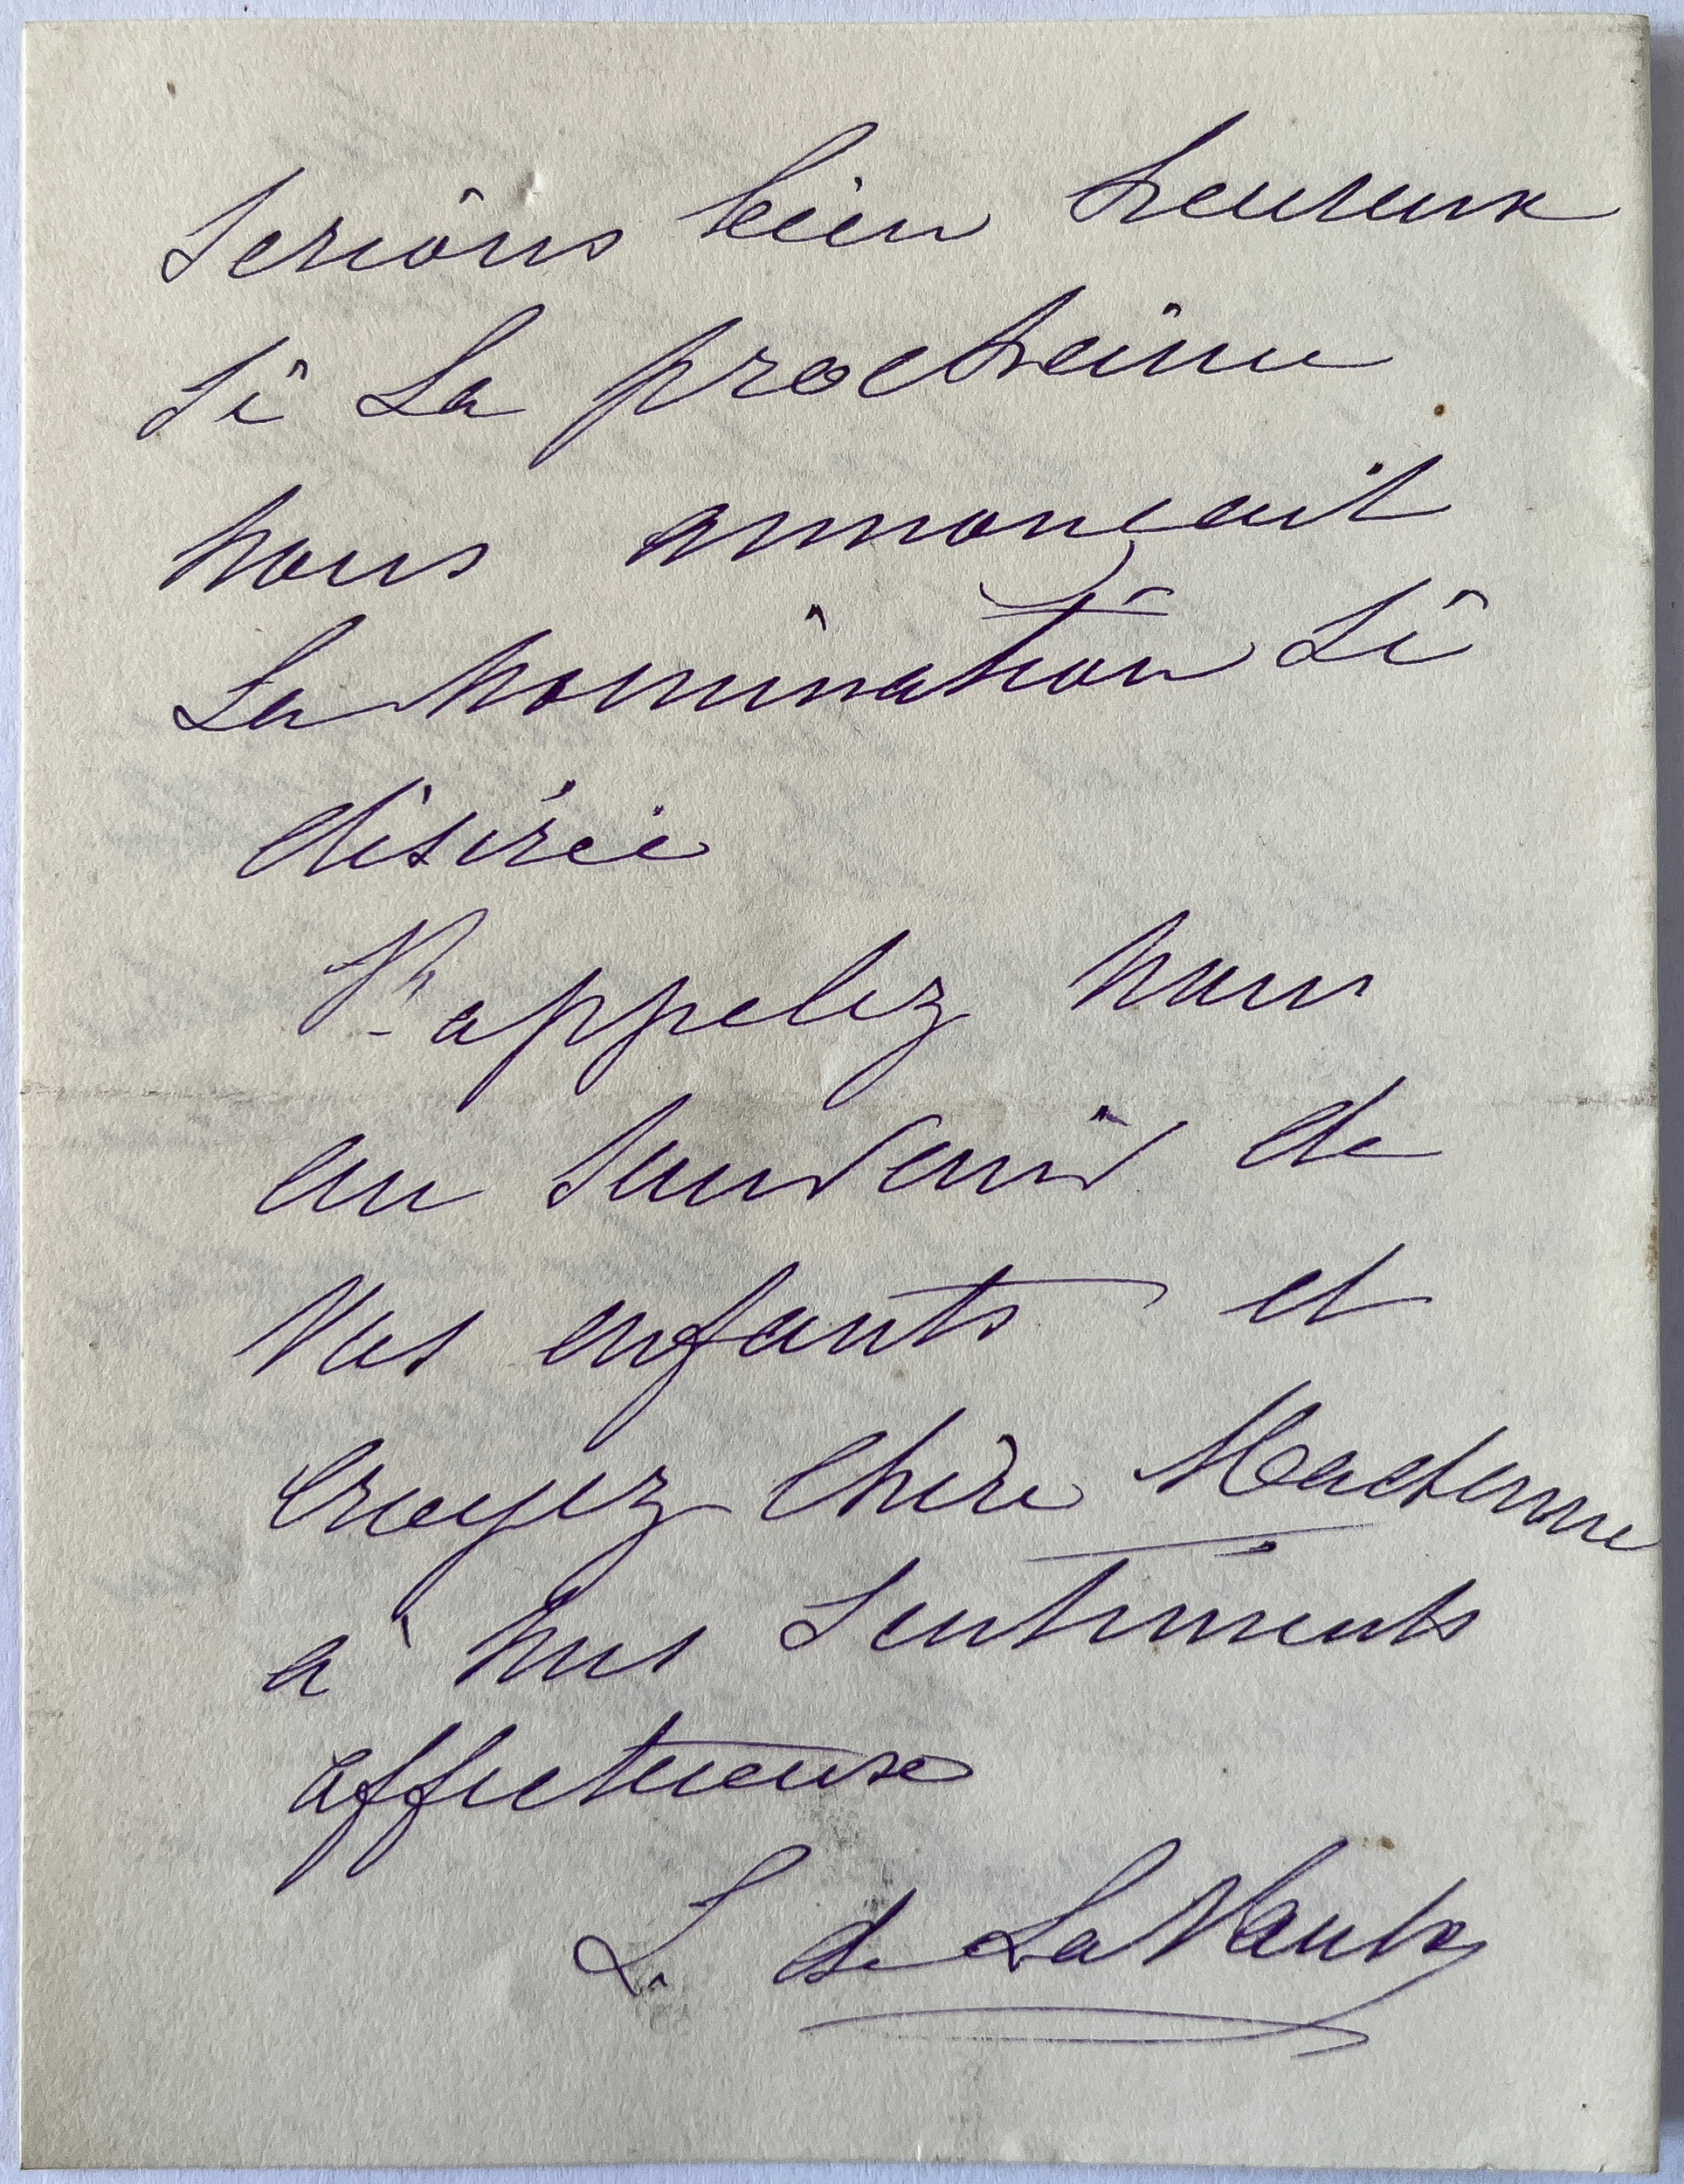 serions bien heureux
si la prochaine
nous annonçait
la nomination si
désirée
Rappelez nous
au souvenir de
vos enfants et
croyez chère Madame
à nos sentiments
affectueux
L. de La Vaulx